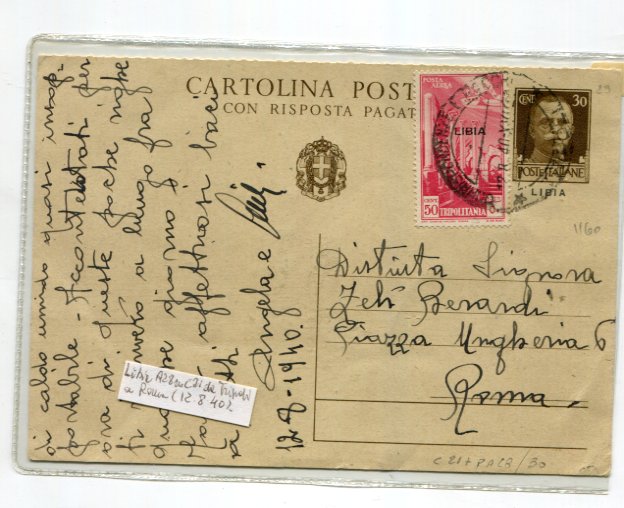 CARTOLINA POST
CON RISPOSTA PAGAT
POSTA AEREA
LIBIA
CENT 50 TRIPOLITANIA
CENT 30
POSTE ITALIANE
LIBIA
29
1160
Distinta Signora
Zehi Berardi
Piazza Ungheria 6
Roma
di caldo umido quasi insop-
portabile - Accontentati per
ora di queste poche righe
ti scriverò a lungo fra
qualche giorno
affettuosi baci
Angela e
12-8-1940.
Libia A28 C21 da Tripoli
a Roma (12.8.40)